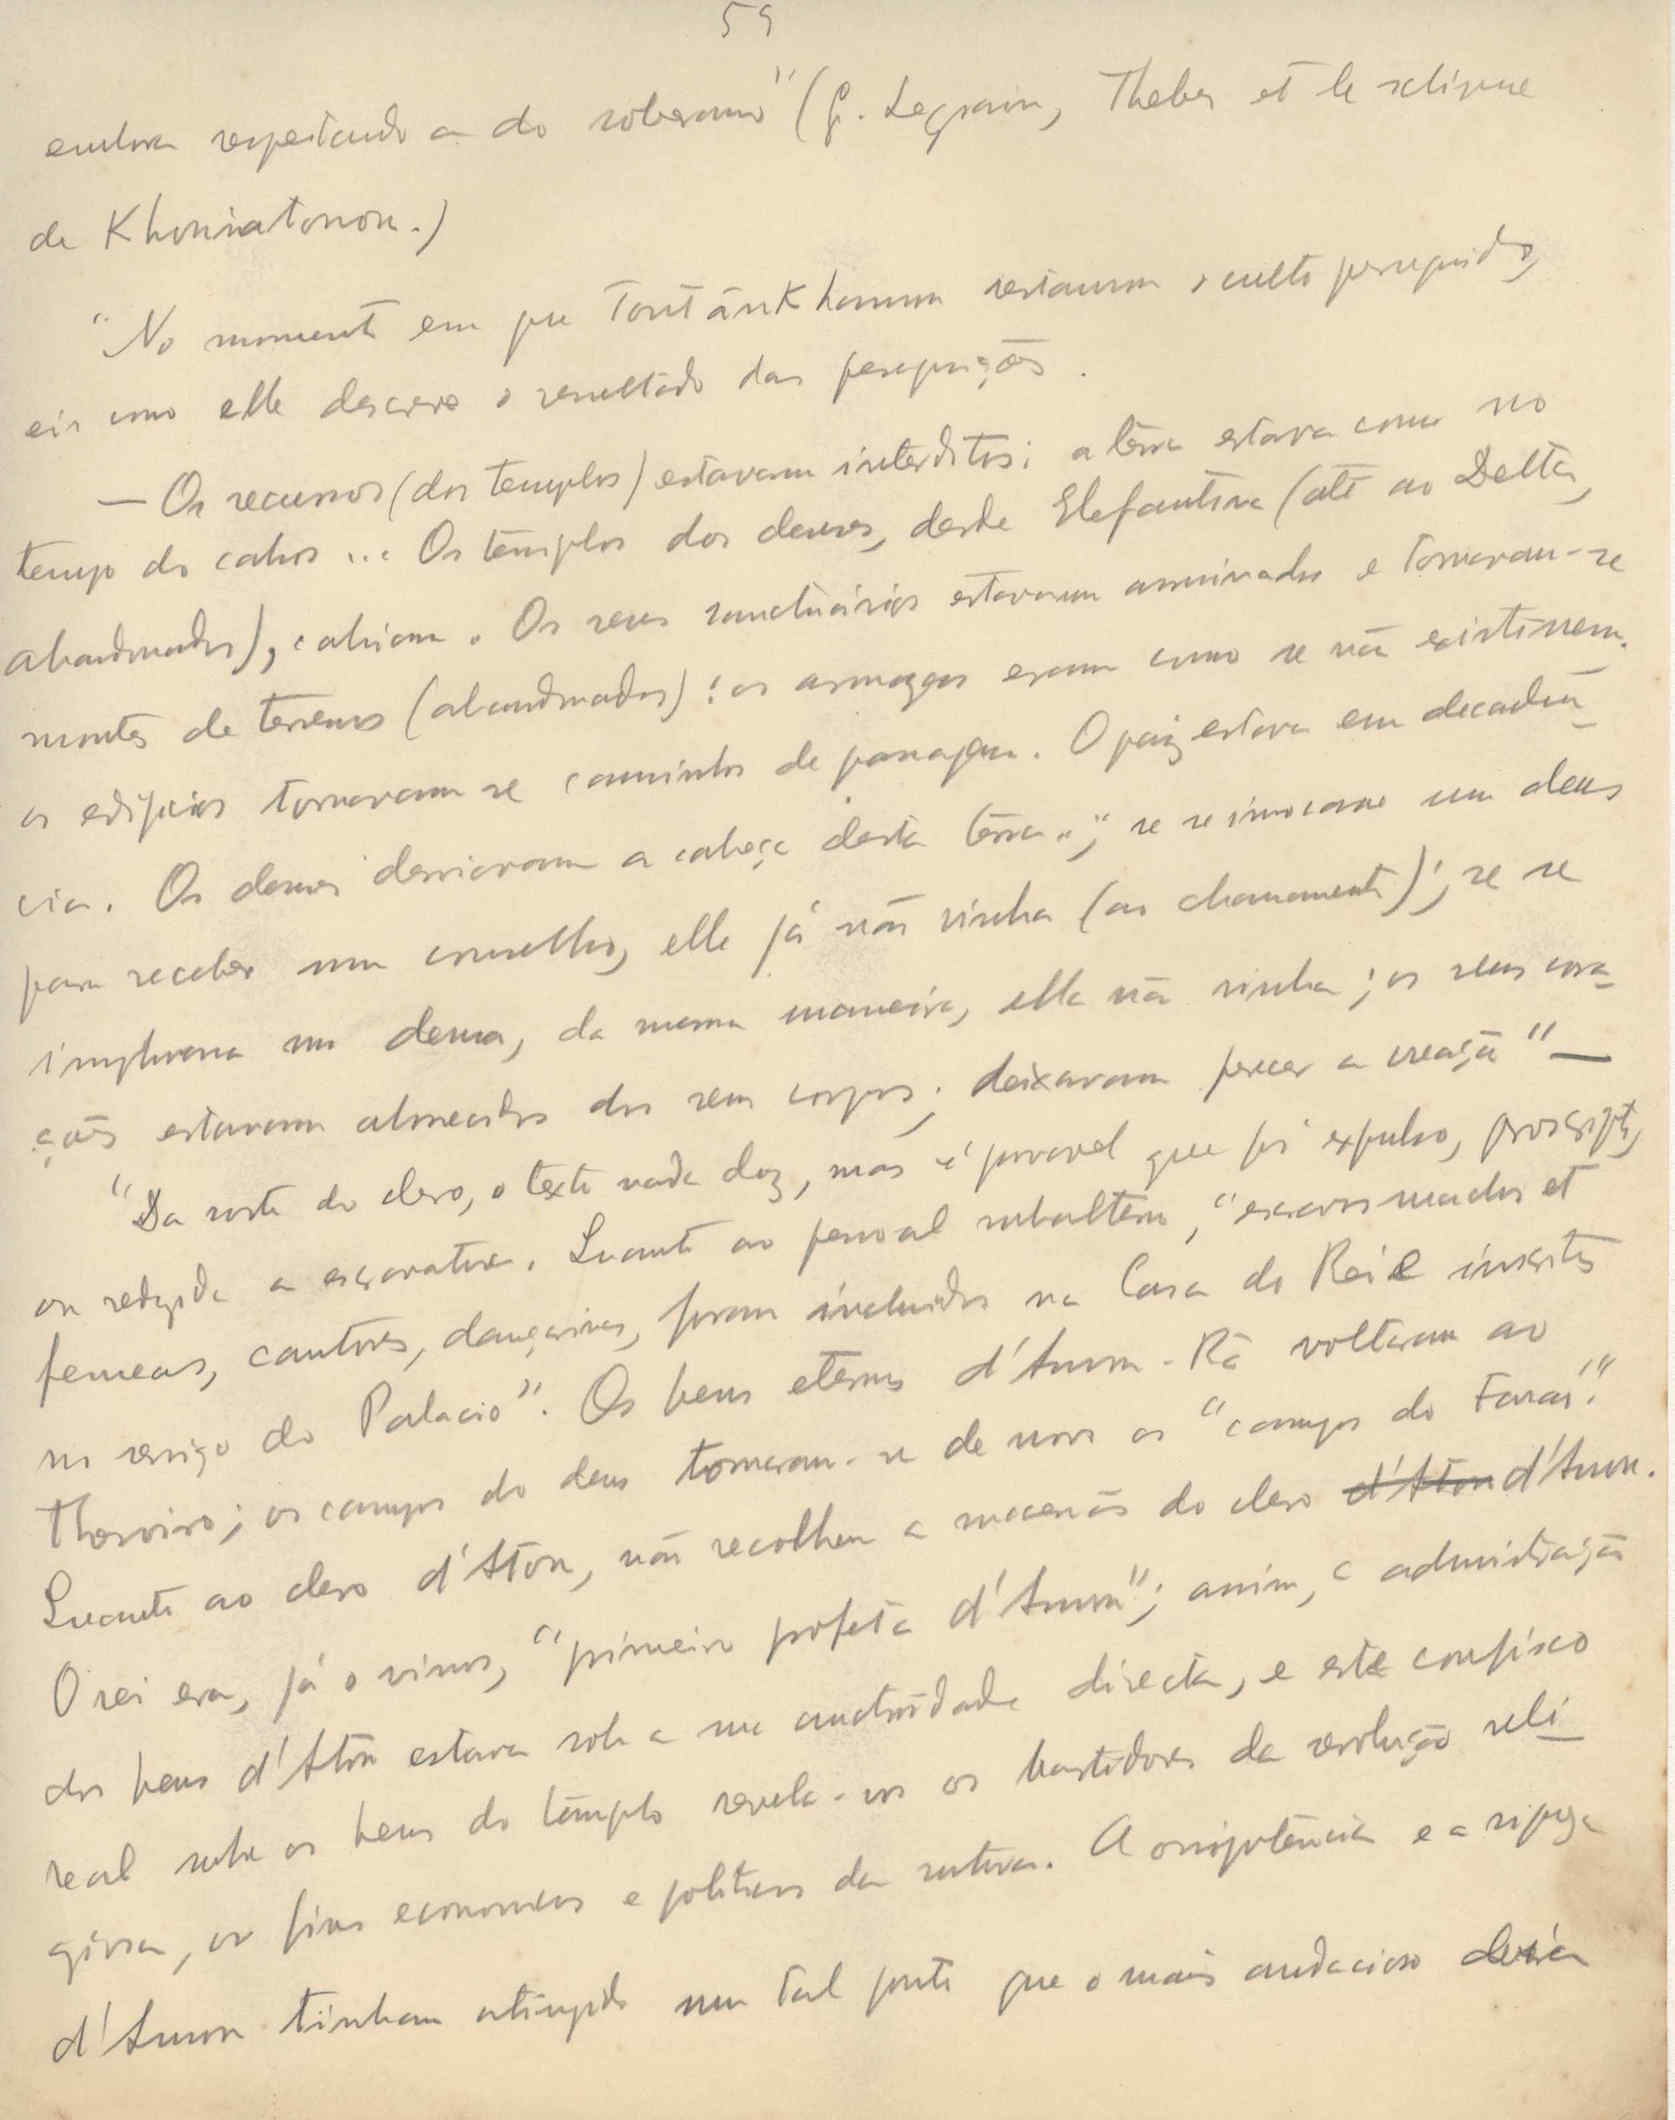 59
embora respeitando a do soberano" (G. Legrain, Thebes et le
de Khouniatonon.)
"No momento em que Toutânkhamum restaurou o culto perseguido,
eis como elle descreve o resultado das perseguições.
— Os recursos (dos templos) estavam interditos; a terra estava como no
tempo do cahos ... Os templos dos deuses, desde Elefantina (até ao Delta,
abandonados), cahiam. Os seus sanctuarios estavam arruinados e tornaram-se
montes de terrenos (abandonados): os armazens eram como se não existissem.
os edificios tornaram se caminhos de passagem. O paiz estava em decadên-
cia. Os deuses desviaram a cabeça desta terra..; se se invocasse um deus
para receber um conselho, elle já não vinha (ao chamamento); se se
implorava uma deusa, da mesma maneira, ella não vinha; os seus cora-
ções estavam aborrecidos dos seus corpos; deixavam perecer a creação" —
"Da sorte do clero, o texto nada diz, mas é provavel que foi expulso, proscripto,
ou reduzido a escravatura. Quanto ao pessoal subalterno, "escravos machos et
femeas, cantores, dançarinas, foram incluidos na Casa do Rei e inscritos
no serviço do Palacio". Os bens eternos d'Amon-Râ voltaram ao
Thesoiro; os campos do deus tornaram-se de novo os "campos do Faraó".
Quanto ao clero d'Aton, não recolheu a do clero d'Aton d'Amon.
O rei era, já o vimos, "primeiro profeta d'Amon"; assim, a administração
dos bens d'Aton estava sob a sua auctoridade directa, e este confisco
real sobre os bens do templo revela-nos os bastidores da revolução reli-
giosa, os fins economicos e politicos da A omnipotência e a riqueza
d'Amon tinham atingido um tal ponto que o mais audacioso devia